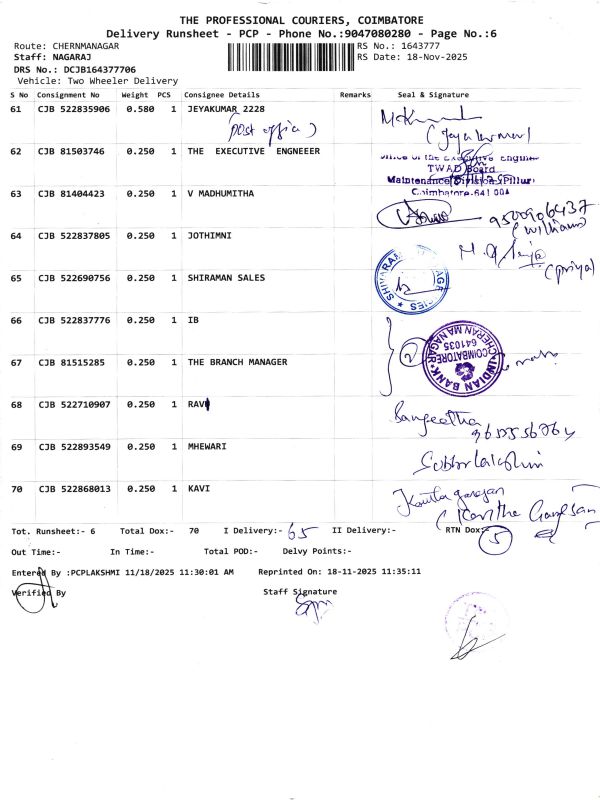 THE PROFESSIONAL COURIERS, COIMBATORE
Delivery Runsheet - PCP - Phone No.:9047080280 - Page No.:6
Route: CHERNMANAGAR
RS No.: 1643777
Staff: NAGARAJ
RS Date: 18-Nov-2025
DRS No.: DCJB164377706
Vehicle: Two Wheeler Delivery
S No Consignment No Weight PCS Consignee Details Remarks Seal & Signature
61 CJB 522835906 0.580 1 JEYAKUMAR 2228
(post office)
(Jeyakumar)
62 CJB 81503746 0.250 1 THE EXECUTIVE ENGNEEER
Office of the Executive Engineer
TWAD Board
Maintenance Division (Pillur)
Coimbatore-641 004
63 CJB 81404423 0.250 1 V MADHUMITHA
9500906437
(williams)
64 CJB 522837805 0.250 1 JOTHIMNI
(priya)
65 CJB 522690756 0.250 1 SHIRAMAN SALES
66 CJB 522837776 0.250 1 IB
2
INDIAN BANK
CHERAN MA NAGAR
COIMBATORE
641035
67 CJB 81515285 0.250 1 THE BRANCH MANAGER
68 CJB 522710907 0.250 1 RAVI
Sangeetha
69 CJB 522893549 0.250 1 MHEWARI
Subbulakshmi
70 CJB 522868013 0.250 1 KAVI
Tot. Runsheet:- 6 Total Dox:- 70 I Delivery:- 65 II Delivery:- RTN Dox:- 5
Out Time:- In Time:- Total POD:- Delvy Points:-
Entered By :PCPLAKSHMI 11/18/2025 11:30:01 AM Reprinted On: 18-11-2025 11:35:11
Verified By Staff Signature